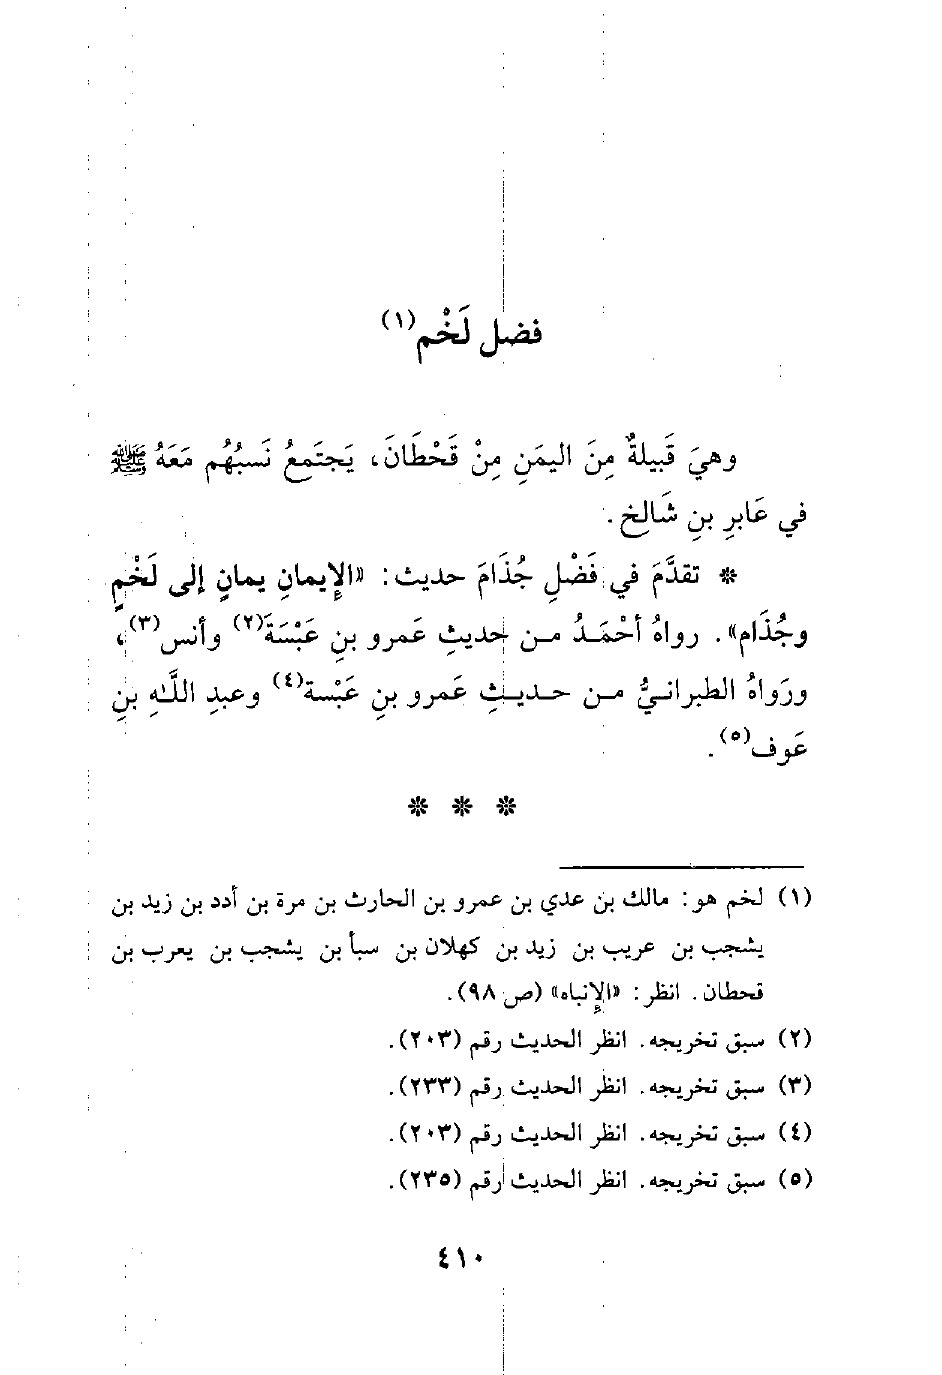 فضل لَخْم(١)
وهيَ قَبيلةٌ مِنَ اليمَنِ مِنْ قَحْطَانَ، يَجتَمعُ نَسبُهُم مَعَهُ ﷺ
في عَابرِ بنِ شَالخ.
* تقدَّمَ في فَضْلِ جُذَامَ حديث: «الإِيمانِ يمانٍ إلى لَخْمٍ
وجُذَام». رواهُ أحْمَدُ من حديثِ عَمرو بنِ عَبْسَةَ(٢) وأنس(٣)،
ورَواهُ الطبرانيُّ من حديثِ عَمرو بنِ عَبْسة(٤) وعبدِ اللَّهِ بنِ
عَوف(٥).
* * *
(١) لخم هو: مالك بن عدي بن عمرو بن الحارث بن مرة بن أدد بن زيد بن
يشجب بن عريب بن زيد بن كهلان بن سبأ بن يشجب بن يعرب بن
قحطان. انظر: «الإِنباه» (ص ٩٨).
(٢) سبق تخريجه. انظر الحديث رقم (٢٠٣).
(٣) سبق تخريجه. انظر الحديث رقم (٢٣٣).
(٤) سبق تخريجه. انظر الحديث رقم (٢٠٣).
(٥) سبق تخريجه. انظر الحديث رقم (٢٣٥).
٤١٠